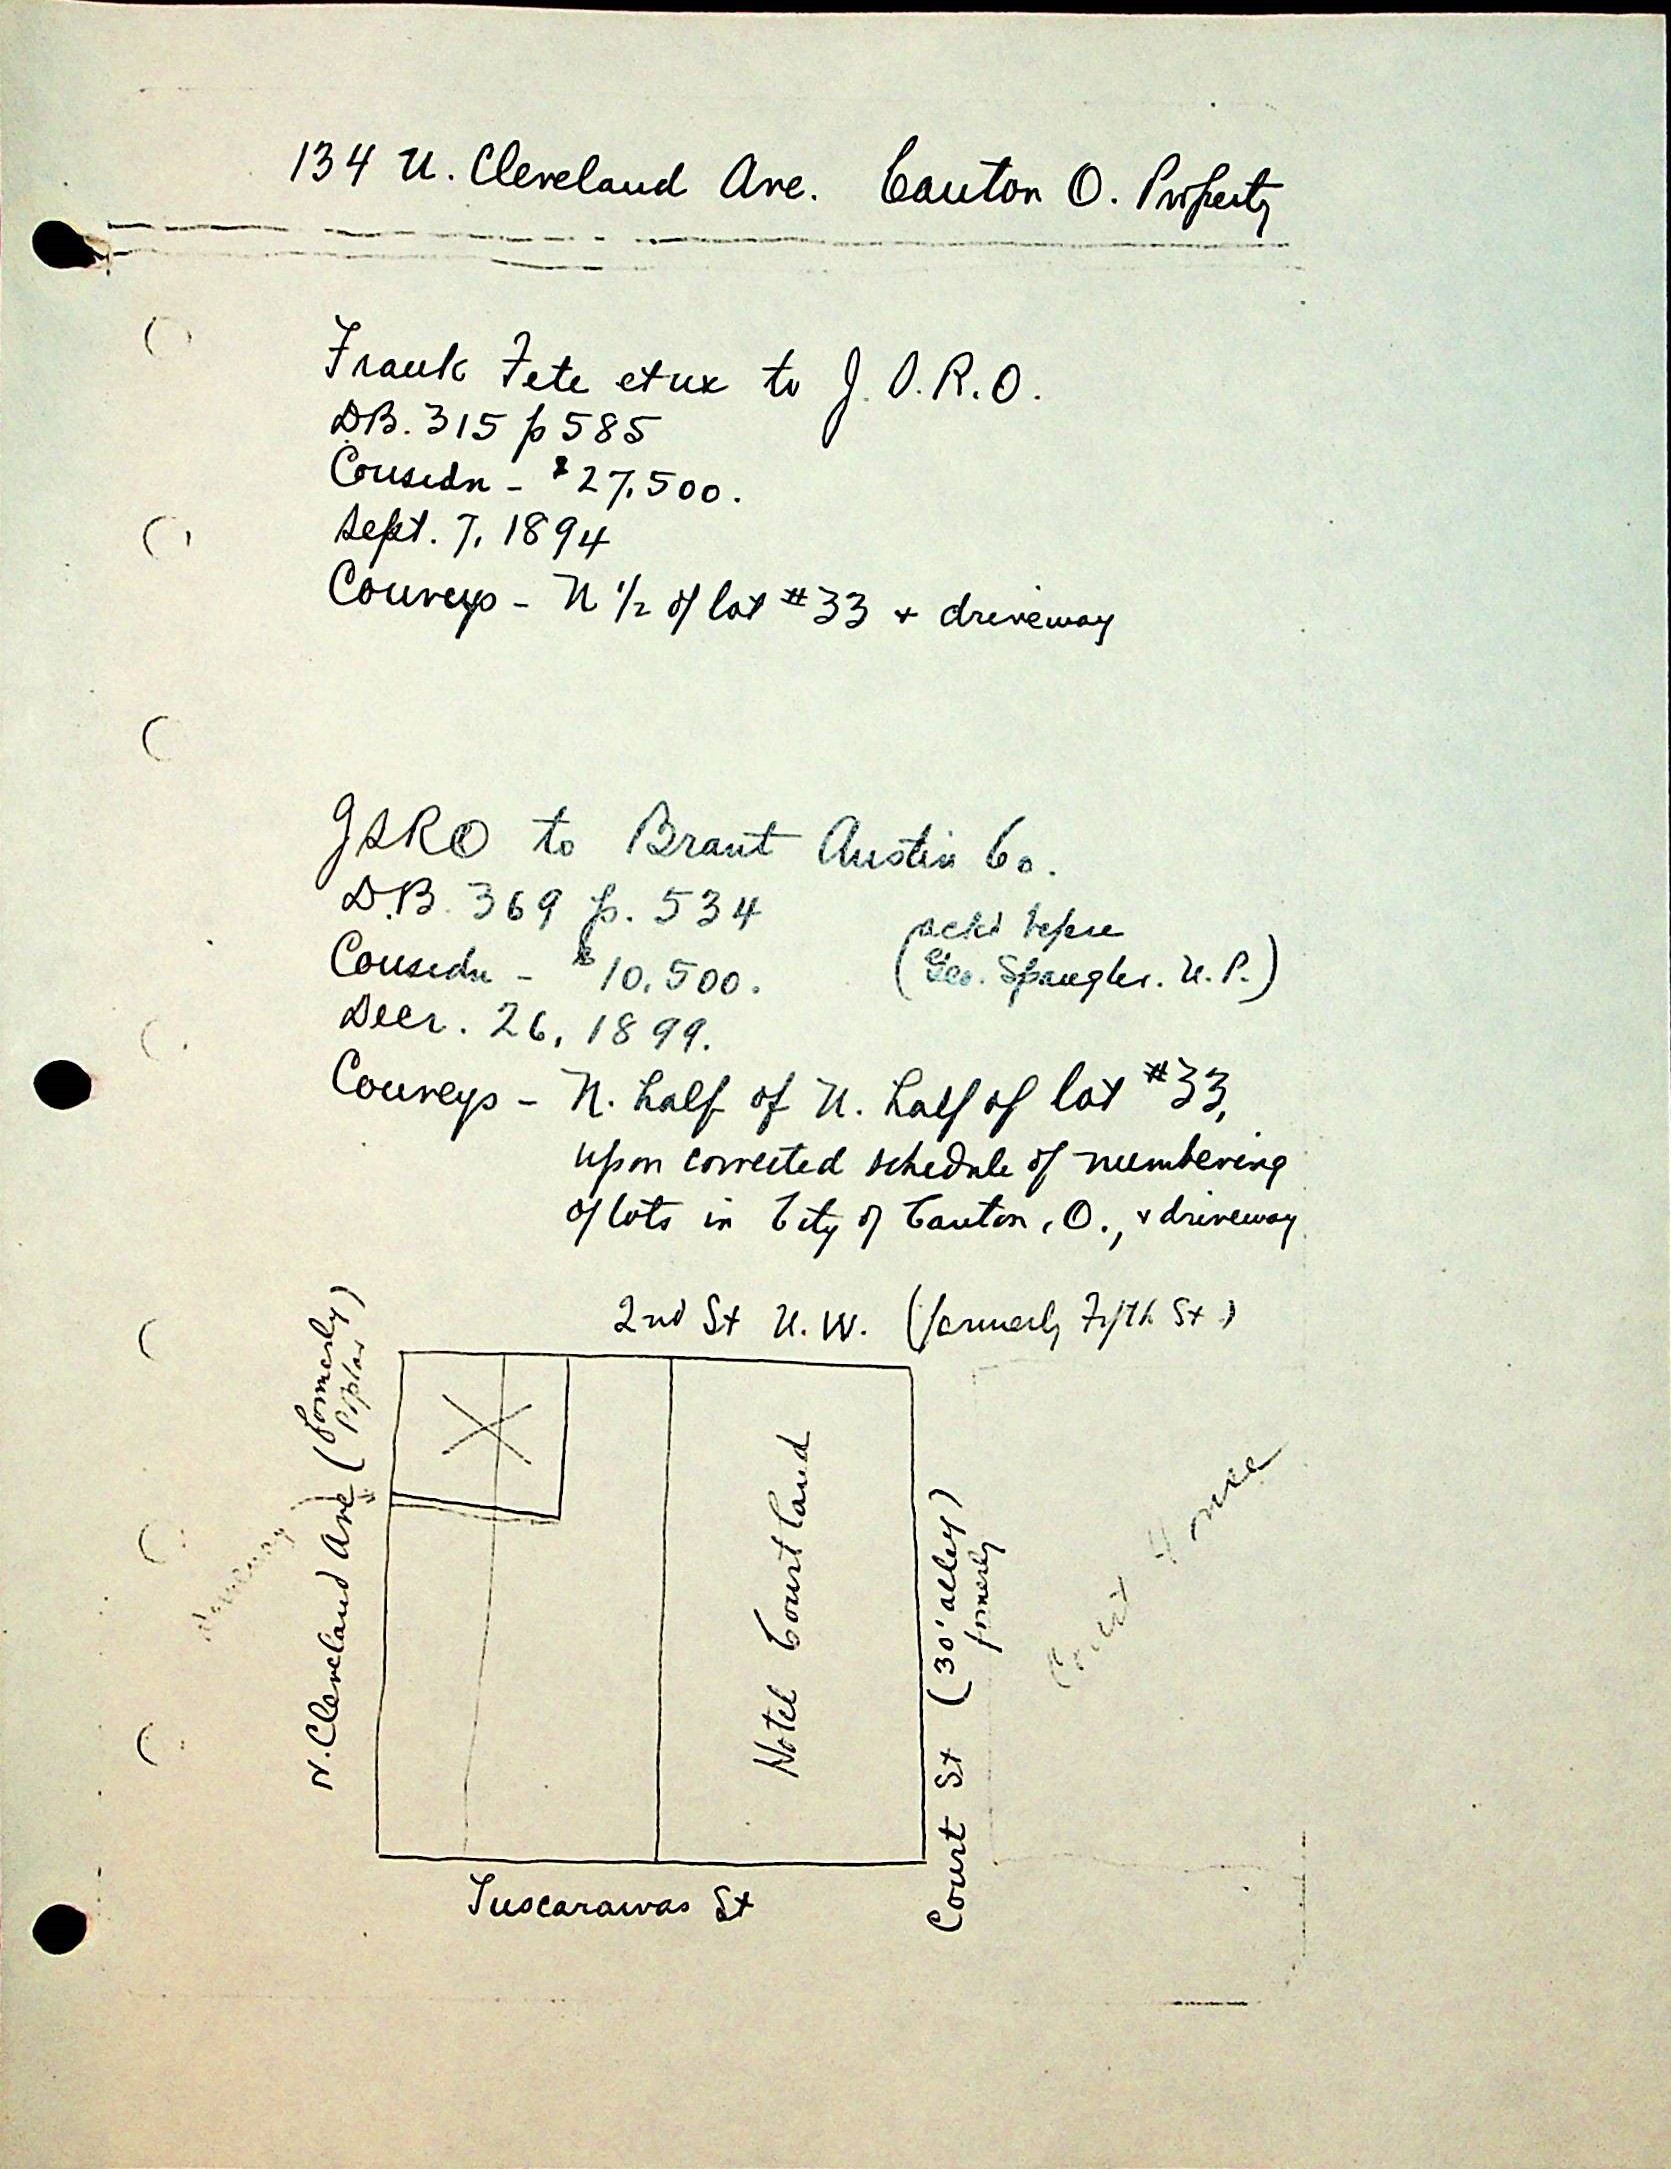 134 N. Cleveland Ave. Canton O. Property
Frank Fete et ux to J. S. R. O.
DB. 315 p 585
Considn - $27,500.
Sept. 7, 1894
Conveys - N 1/2 of lot #33 + driveway
JSRO to Brant Austin Co.
D.B. 369 p. 534
ackd before
Considn - $10,500.
(Geo. Spangler. N. P.)
Decr. 26, 1899.
Conveys - N. half of N. half of lot #33,
upon corrected schedule of numbering
of lots in City of Canton, O., + driveway
2nd St N. W. (formerly Fifth St)
N. Cleveland Ave (formerly
Poplar)
driveway
Hotel Courtland
Court St (30' alley)
formerly
Court House
Tuscarawas St